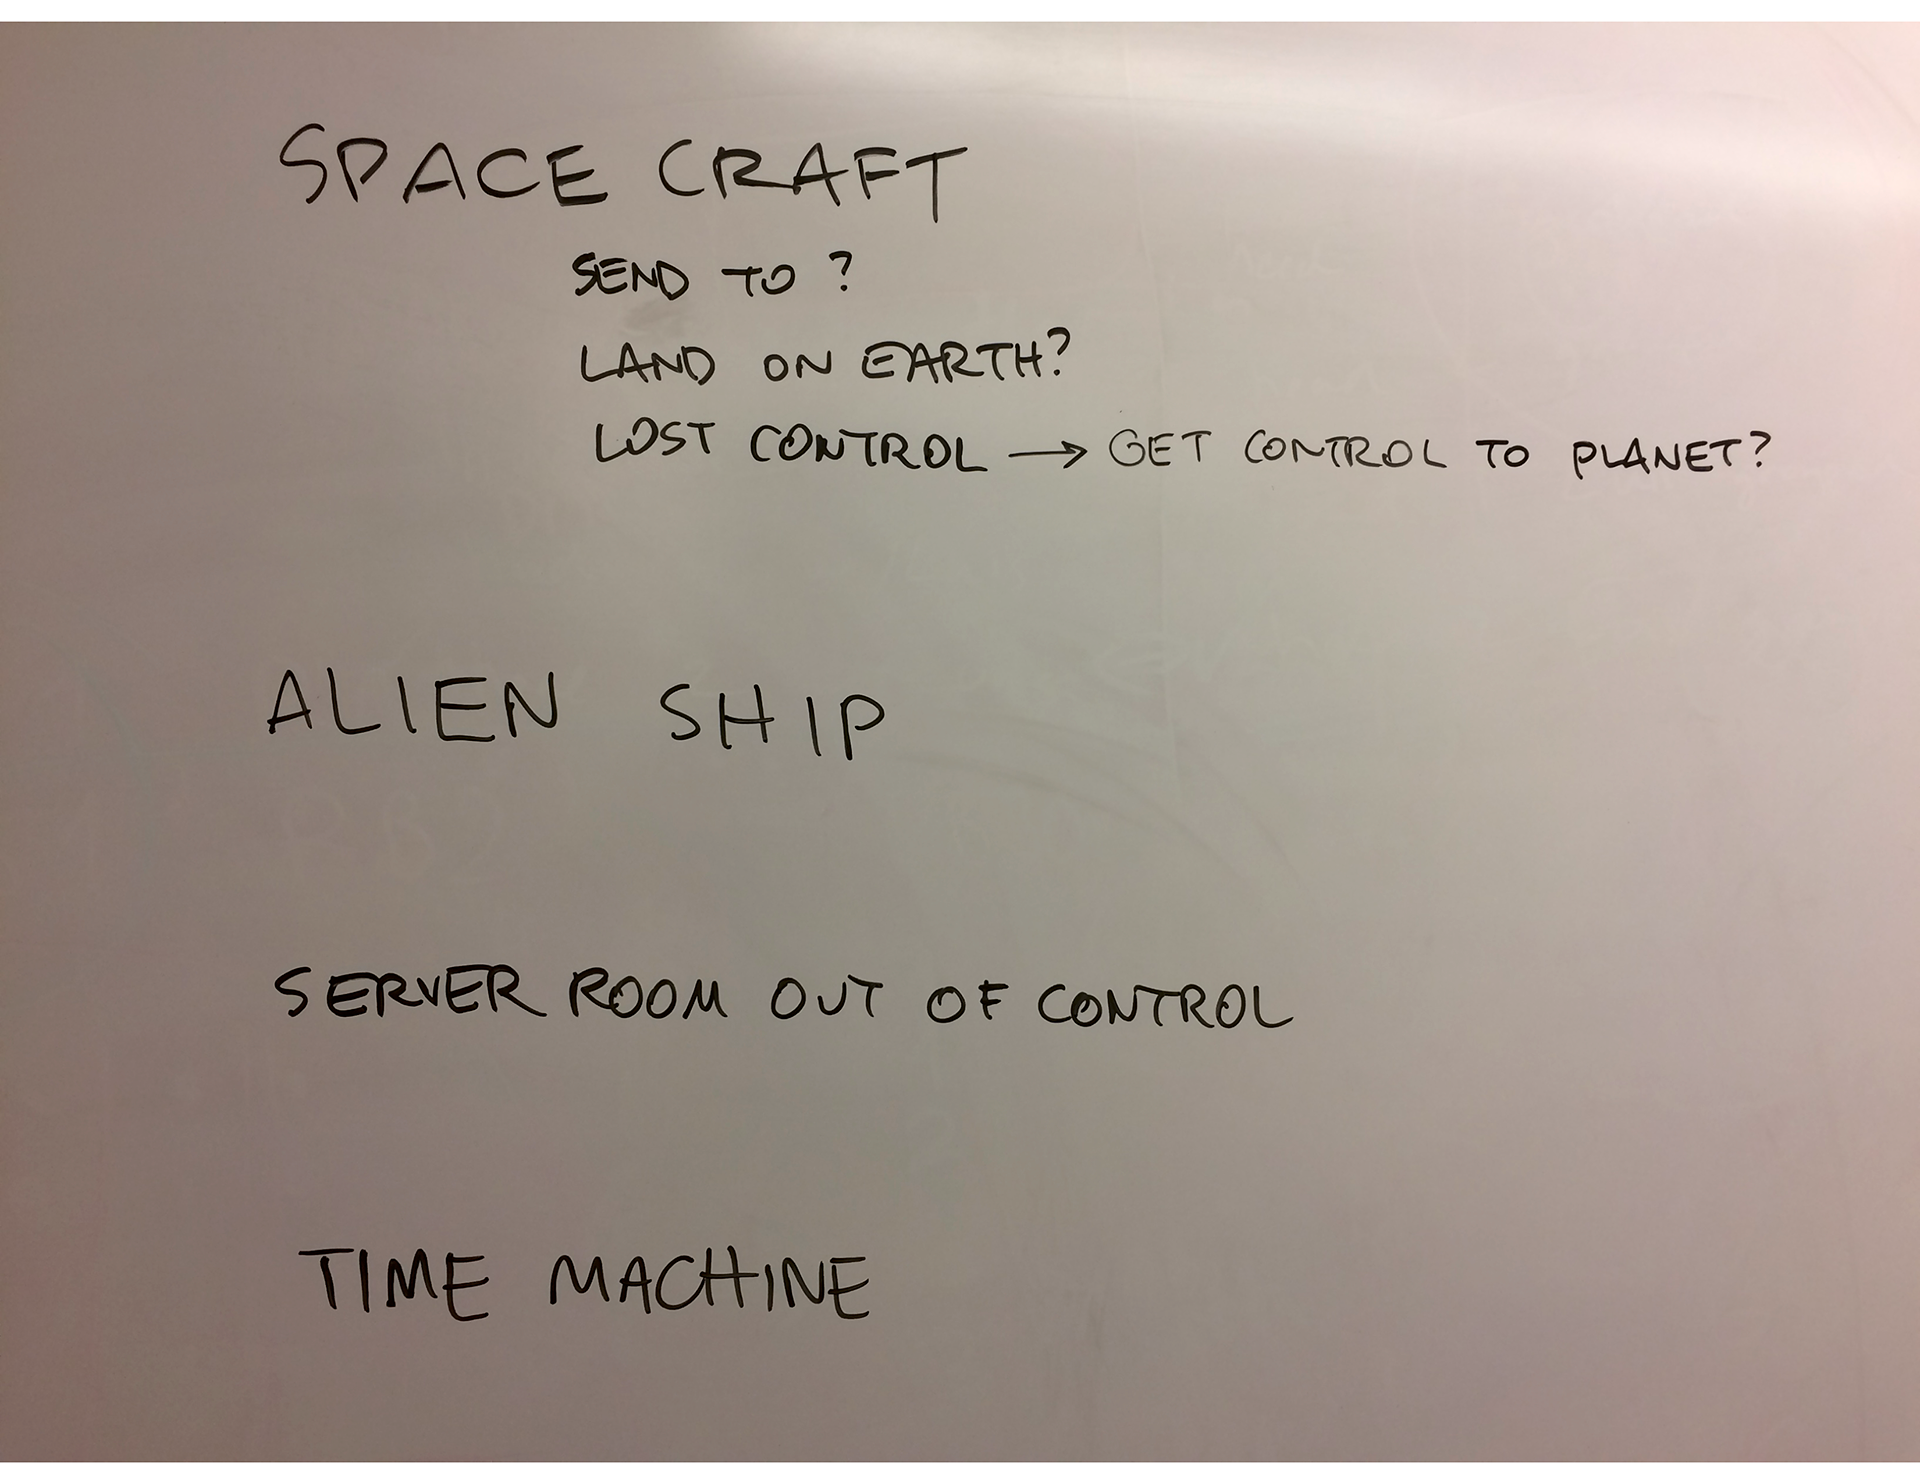 SPACE CRAFT
SEND TO ?
LAND ON EARTH?
LOST CONTROL → GET CONTROL TO PLANET?
ALIEN SHIP
SERVER ROOM OUT OF CONTROL
TIME MACHINE